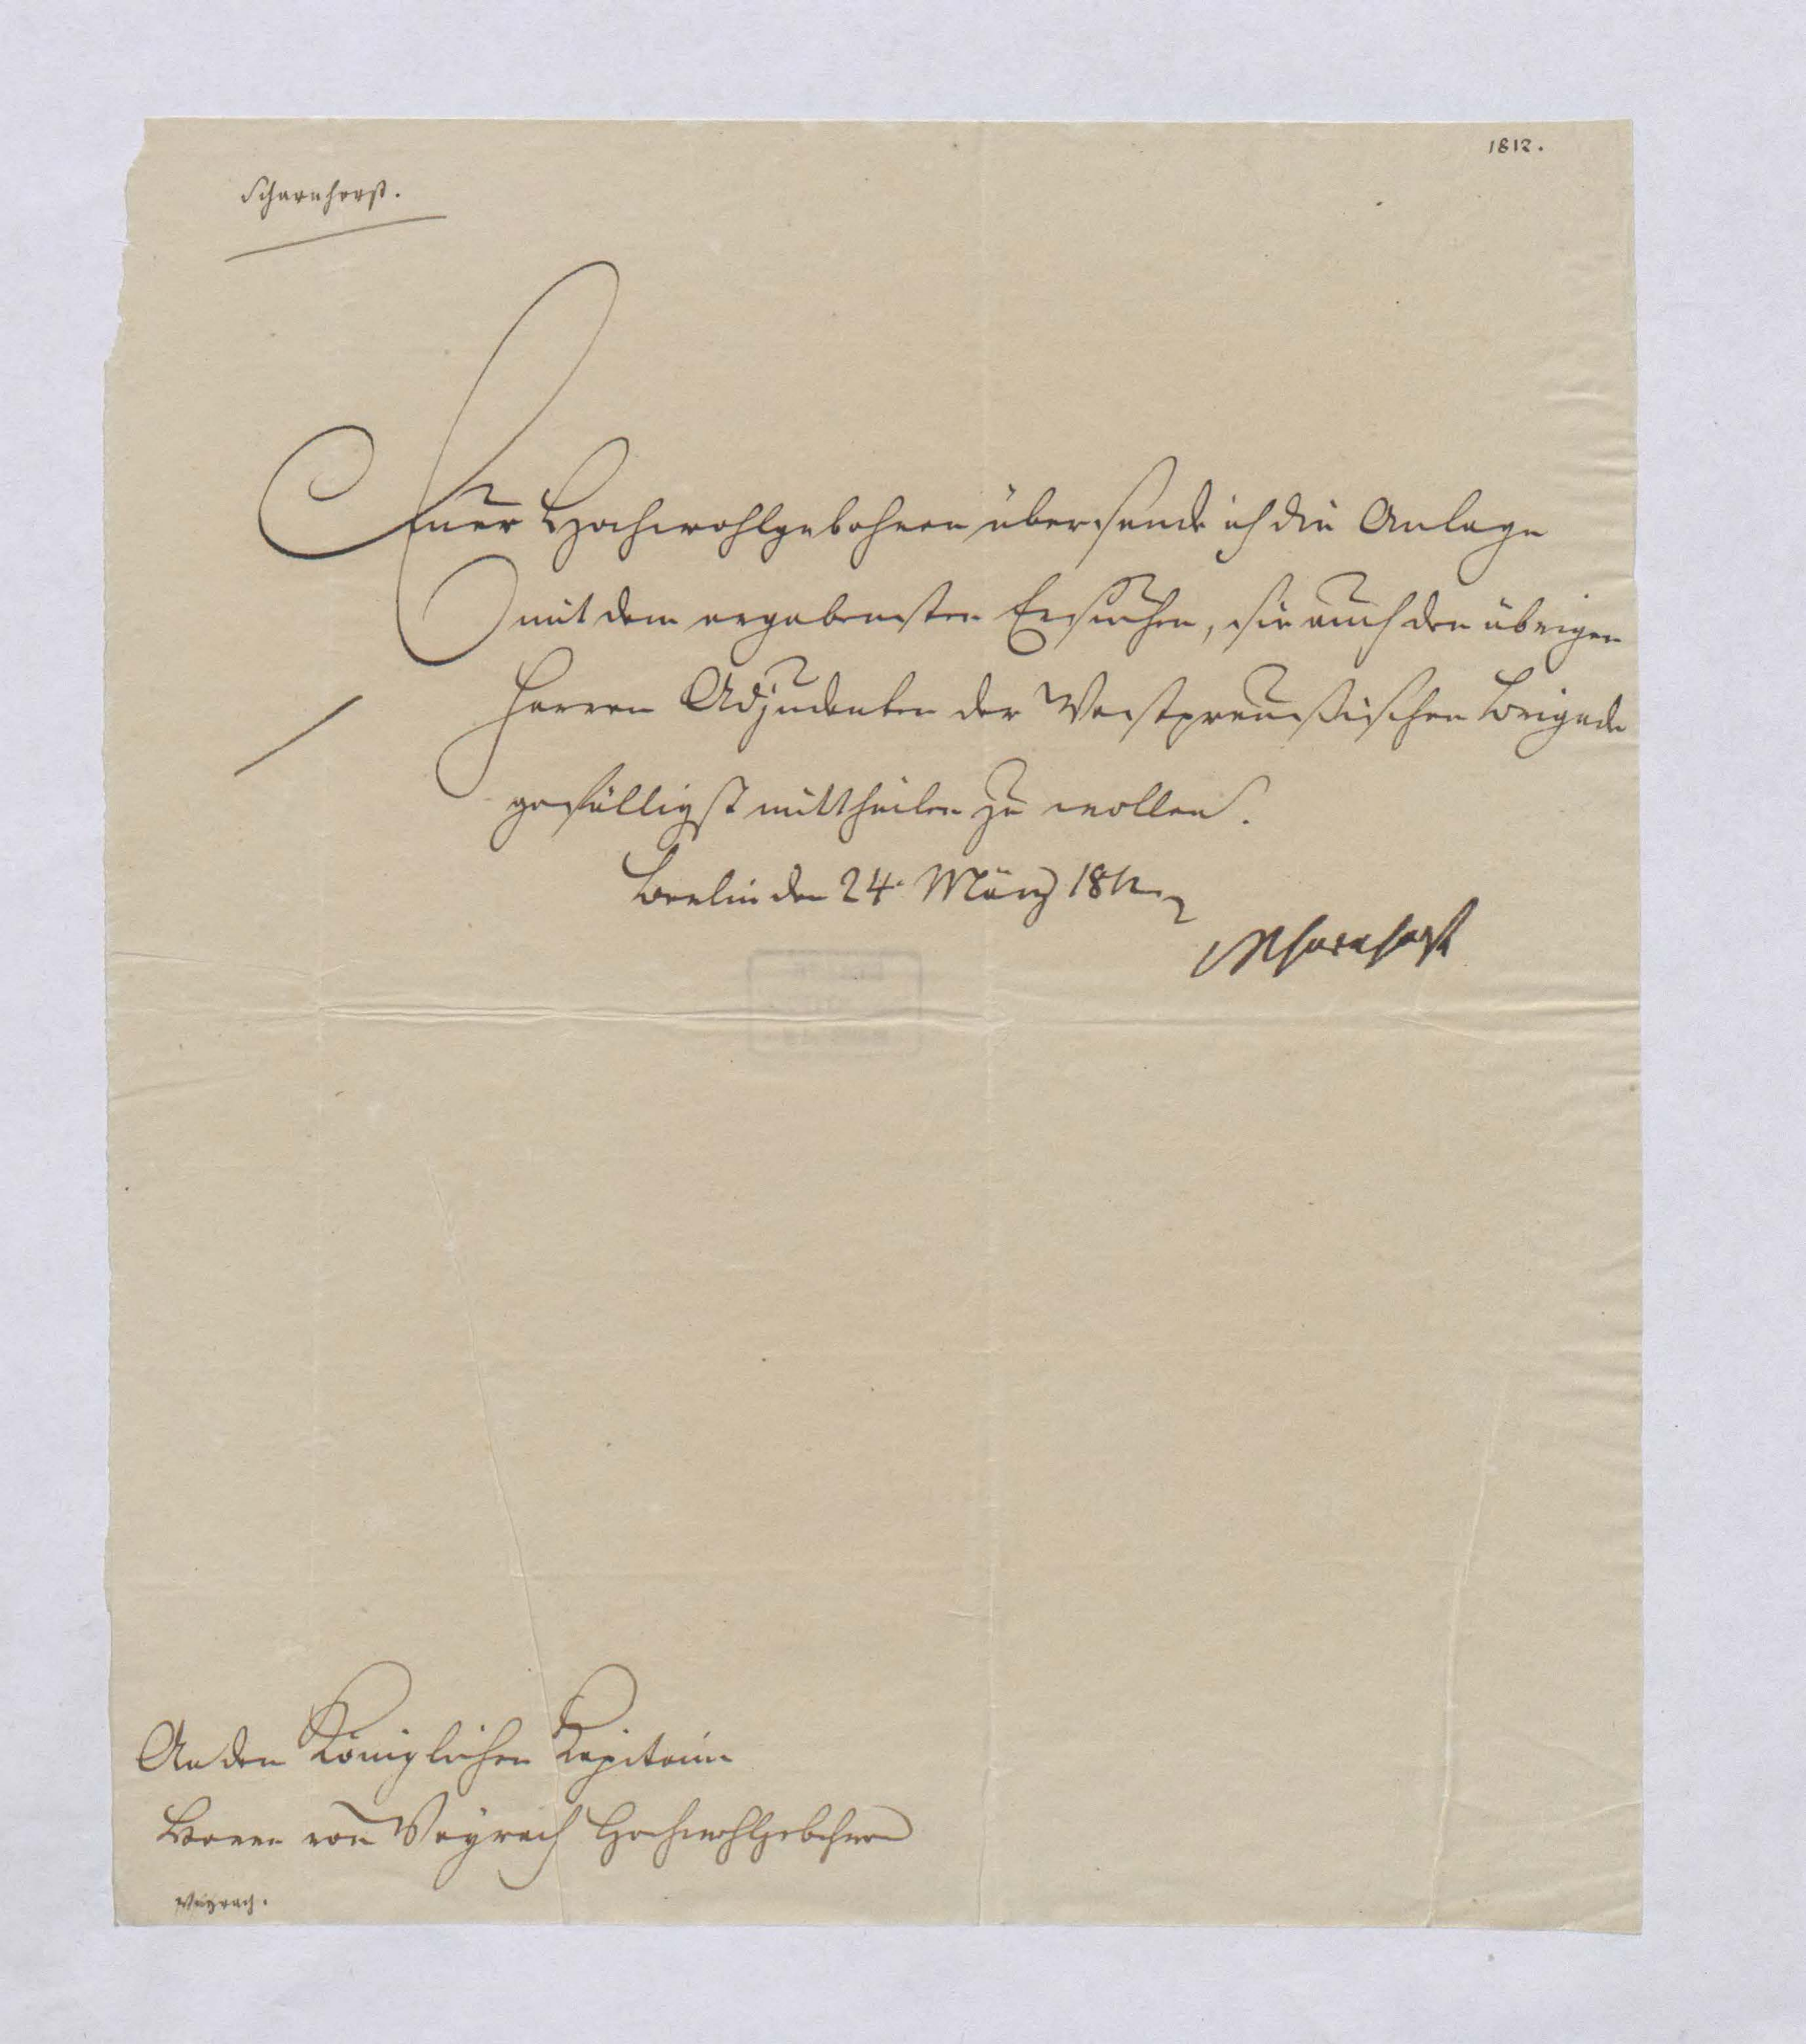 1812.
Scharnhorst.
Euer Hochwohlgebohren übersende ich die Anlage
mit dem ergebensten Ersuchen, sie auch den übrigen
Herren Adjudenten der Westpreußischen Brigade
gefälligst mittheilen zu wollen.
Berlin den 24. März 1812
vScharnhorst
An den Königlichen Kapitain
Herrn von Weyrach Hochwohlgebohren
Weyrach.